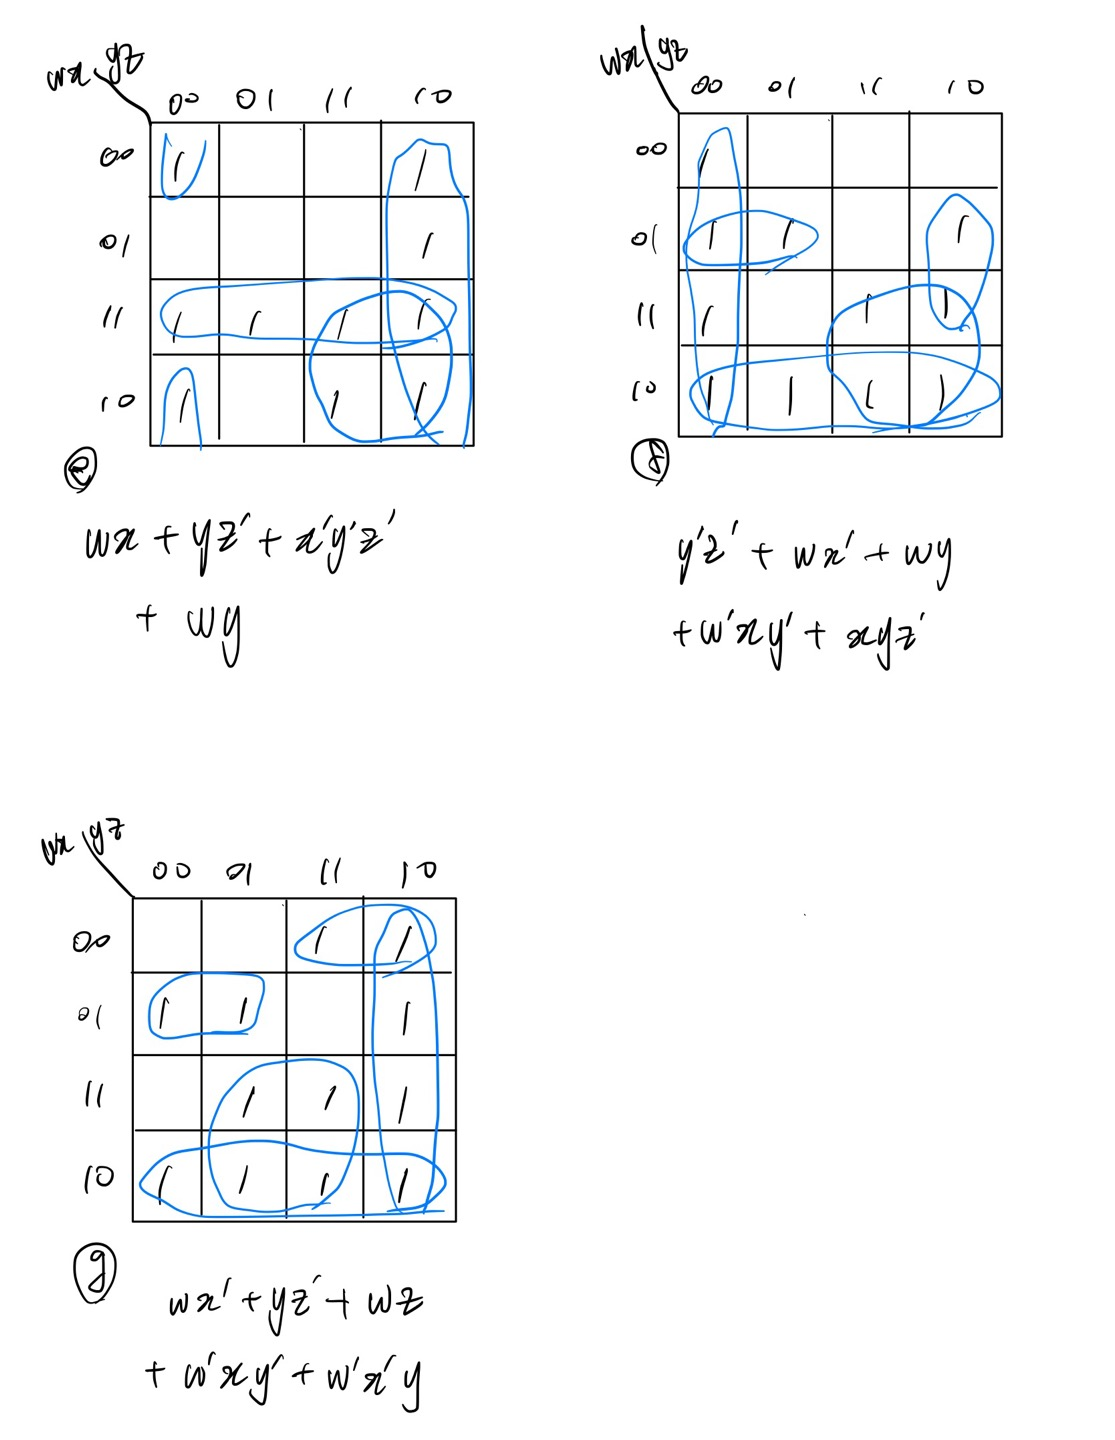 wx yz
00 01 11 10
00 1 1
01 1
11 1 1 1 1
10 1 1 1
e
wx + yz' + x'y'z'
+ wy
wx yz
00 01 11 10
00 1
01 1 1 1
11 1 1 1
10 1 1 1 1
f
y'z' + wx' + wy
+ w'xy' + xyz'
wx yz
00 01 11 10
00 1 1
01 1 1 1
11 1 1 1
10 1 1 1 1
g
wx' + yz' + wz
+ w'xy' + w'x'y